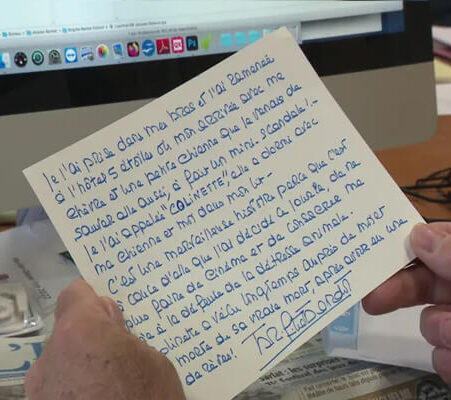 Je l'ai prise dans mes bras et l'ai ramenée
à l'hôtel 5 étoiles où mon arrivée avec ma
chèvre et une petite chienne que je venais de
sauver elle aussi, a fait un mini-scandale ! -
Je l'ai appelée "COLINETTE", elle a dormi avec
ma chienne et moi dans mon lit -
C'est une merveilleuse histoire parce que c'est
cause d'elle que j'ai décidé ce jour là, de ne
plus faire de cinéma et de consacrer ma
à la défense de la détresse animale.
olinette a vécu longtemps auprès de moi et
morte de sa vraie mort, après avoir eu une
de reine !
Bardot